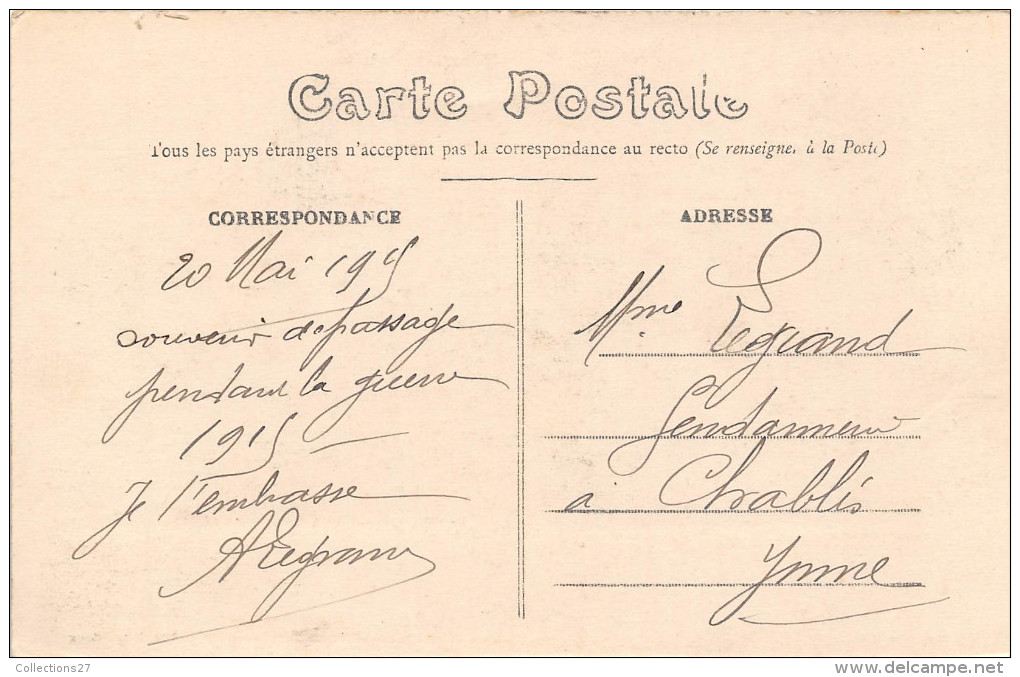 Carte Postale
Tous les pays étrangers n'acceptent pas la correspondance au recto (Se renseigner à la Poste)
CORRESPONDANCE
20 Mai 1915
souvenir de passage
pendant la guerre
1915
Je t'embrasse
ALegrand
ADRESSE
Mme Legrand
Gendarmerie
a Chablis
Yonne
Collections27
www.delcampe.net